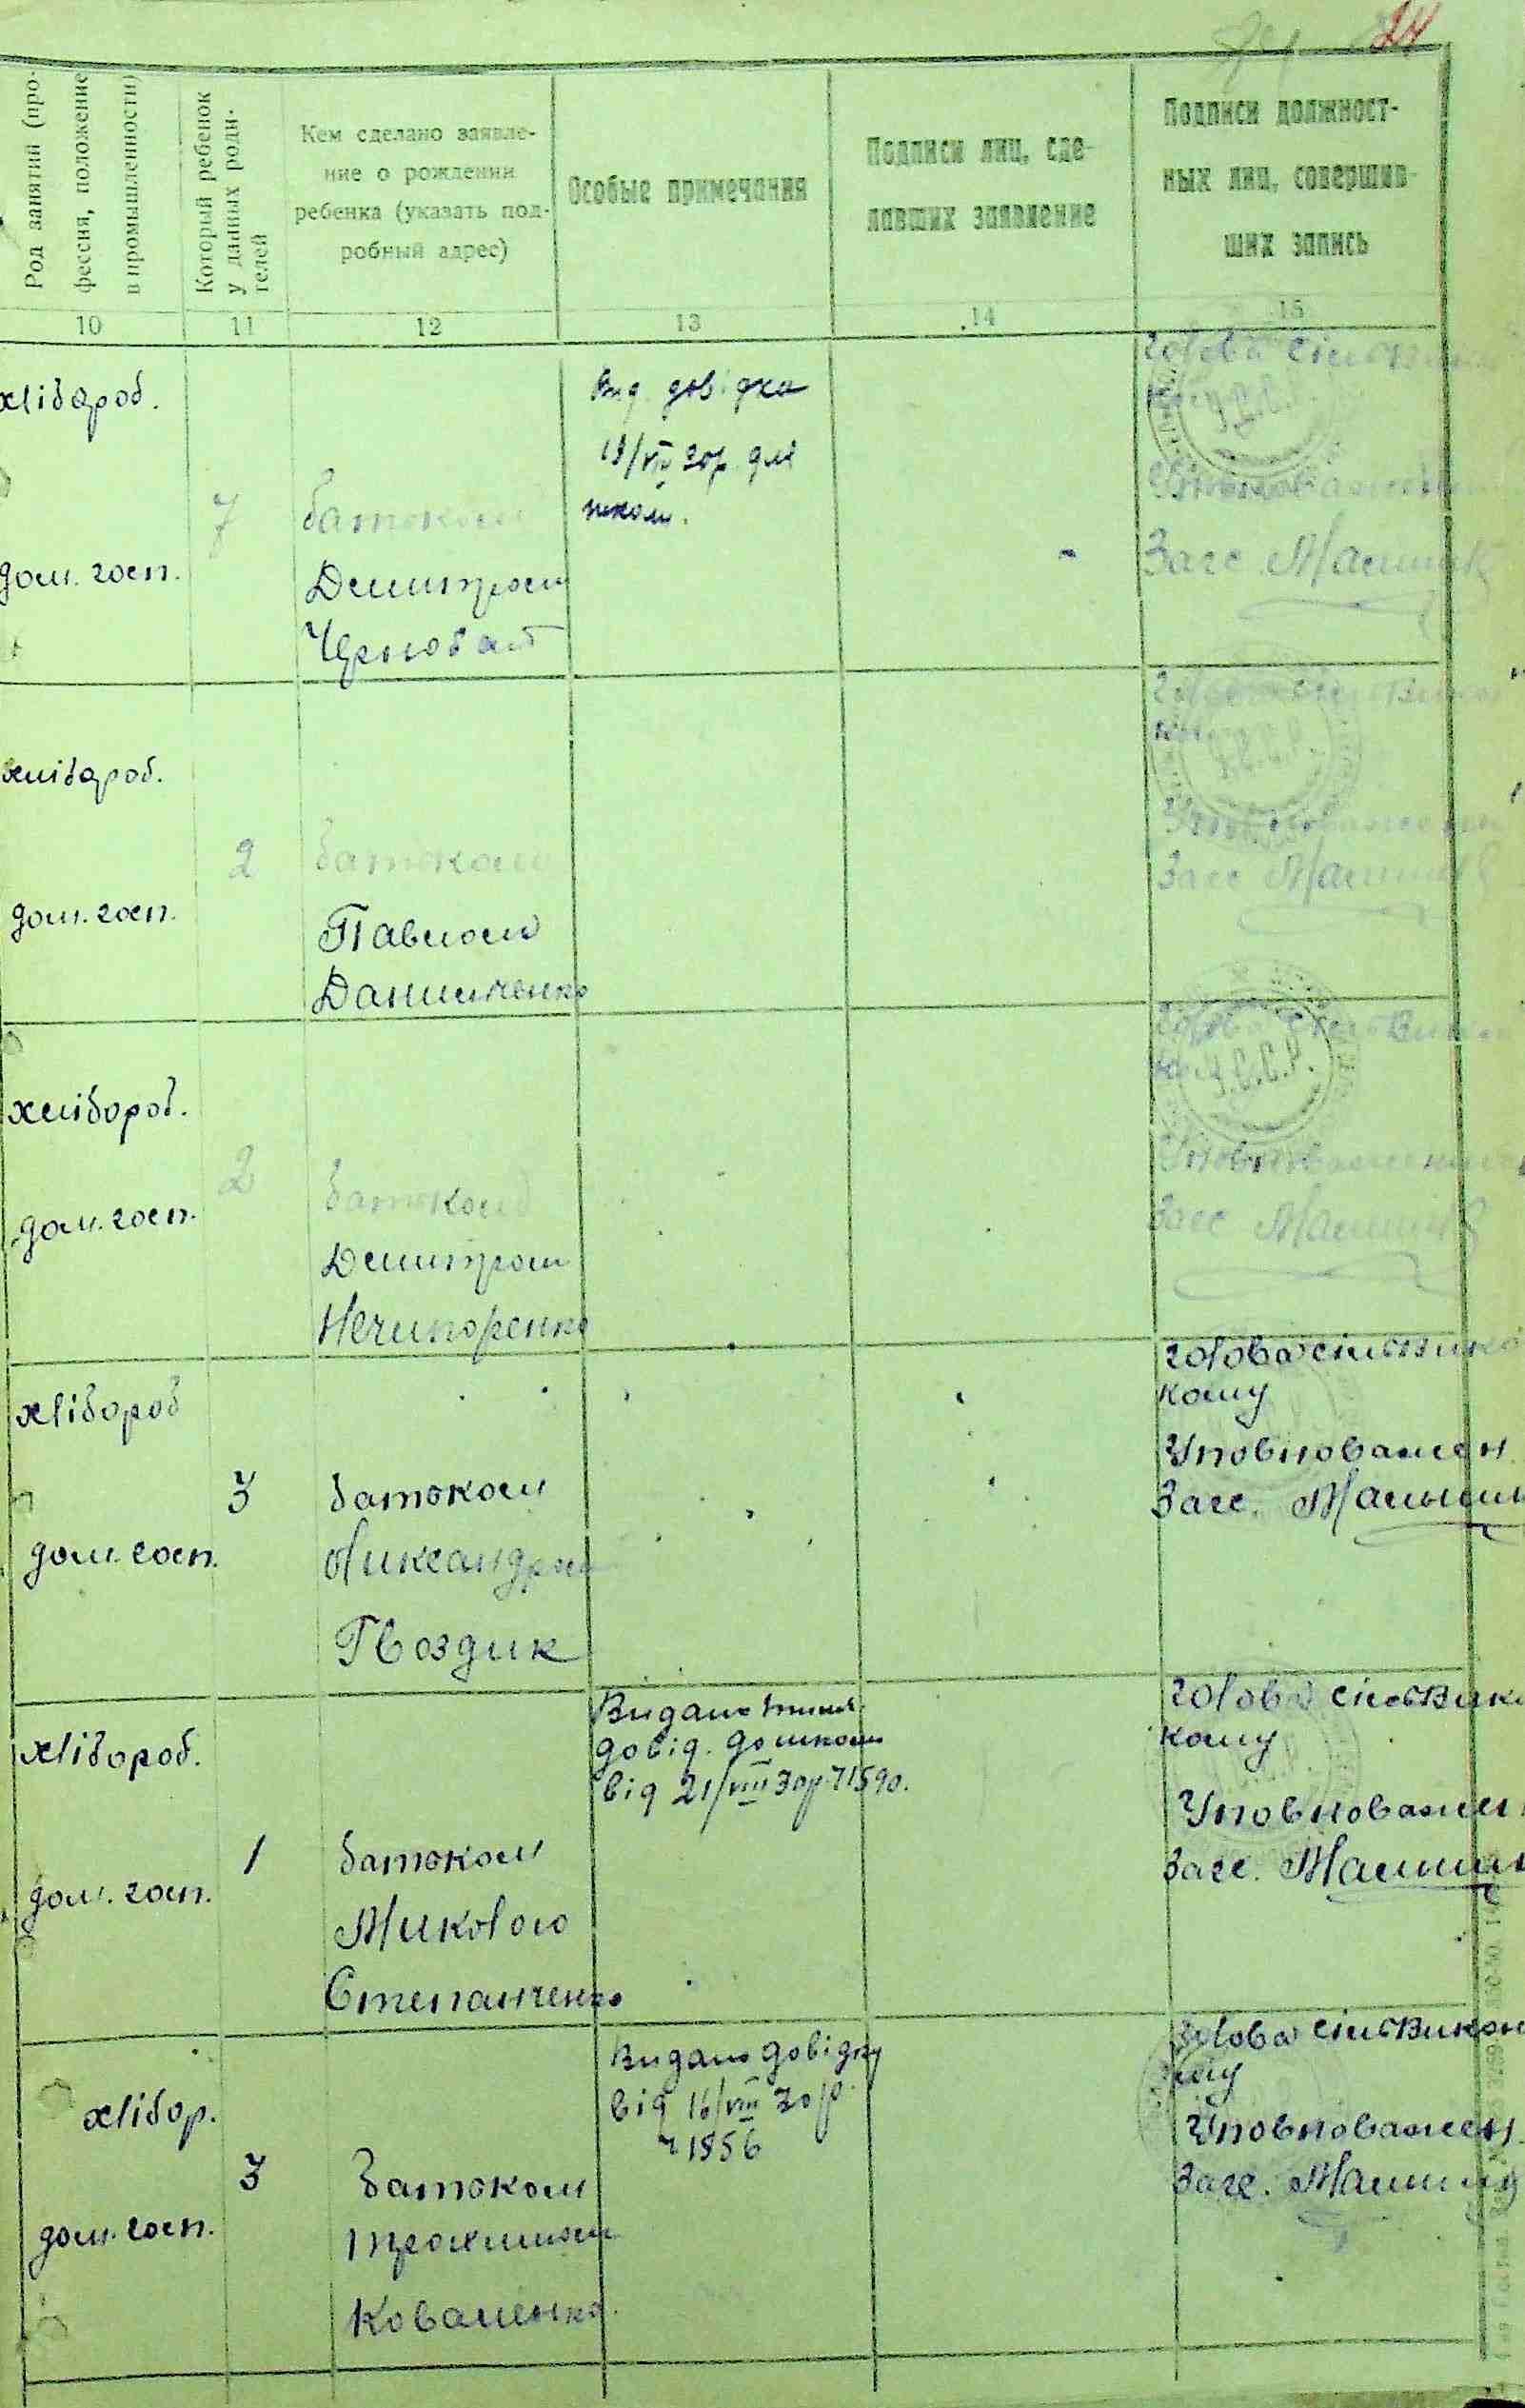 24
Род занятий (про-
фессия, положение
в промышленности)
Который ребенок
у данных роди-
телей
Кем сделано заявле-
ние о рождении
ребенка (указать под-
робный адрес)
Особые примечания
Подписи лиц, сде-
лавших заявление
Подписи должност-
ных лиц, совершив-
ших запись
10 11 12 13 14 15
хлібороб.
дом. госп.
7
батьком
Дмитром
Черновол
Вид. довідка
18/VIII 30р. для
школи.
Голова сільвикон
Уповноважений
Загс
У.С.С.Р.
хлібороб.
дом. госп.
2
батьком
Павлом
Данильченко
Голова сільвикон
Уповноважений
Загс
хлібороб.
дом. госп.
2
батьком
Дмитром
Нечипоренко
Голова сільвикон
У.С.С.Р.
Уповноважений
Загс
хлібороб
дом. госп.
3
батьком
Олександром
Гвоздик
Голова сільвико
кому
Уповноважен
Загс.
хлібороб.
дом. госп.
1
батьком
Миколою
Степанченко
Видано
довід. до школи
від 21/VIII 30р. 71590.
Голова сільвико
кому
Уповноважен
Загс.
хлібор.
дом. госп.
3
батьком
Коваленко.
Видано довідку
від 16/VIII 30р.
1856
Голова сільвикон
кому
Уповноважен.
Загс.